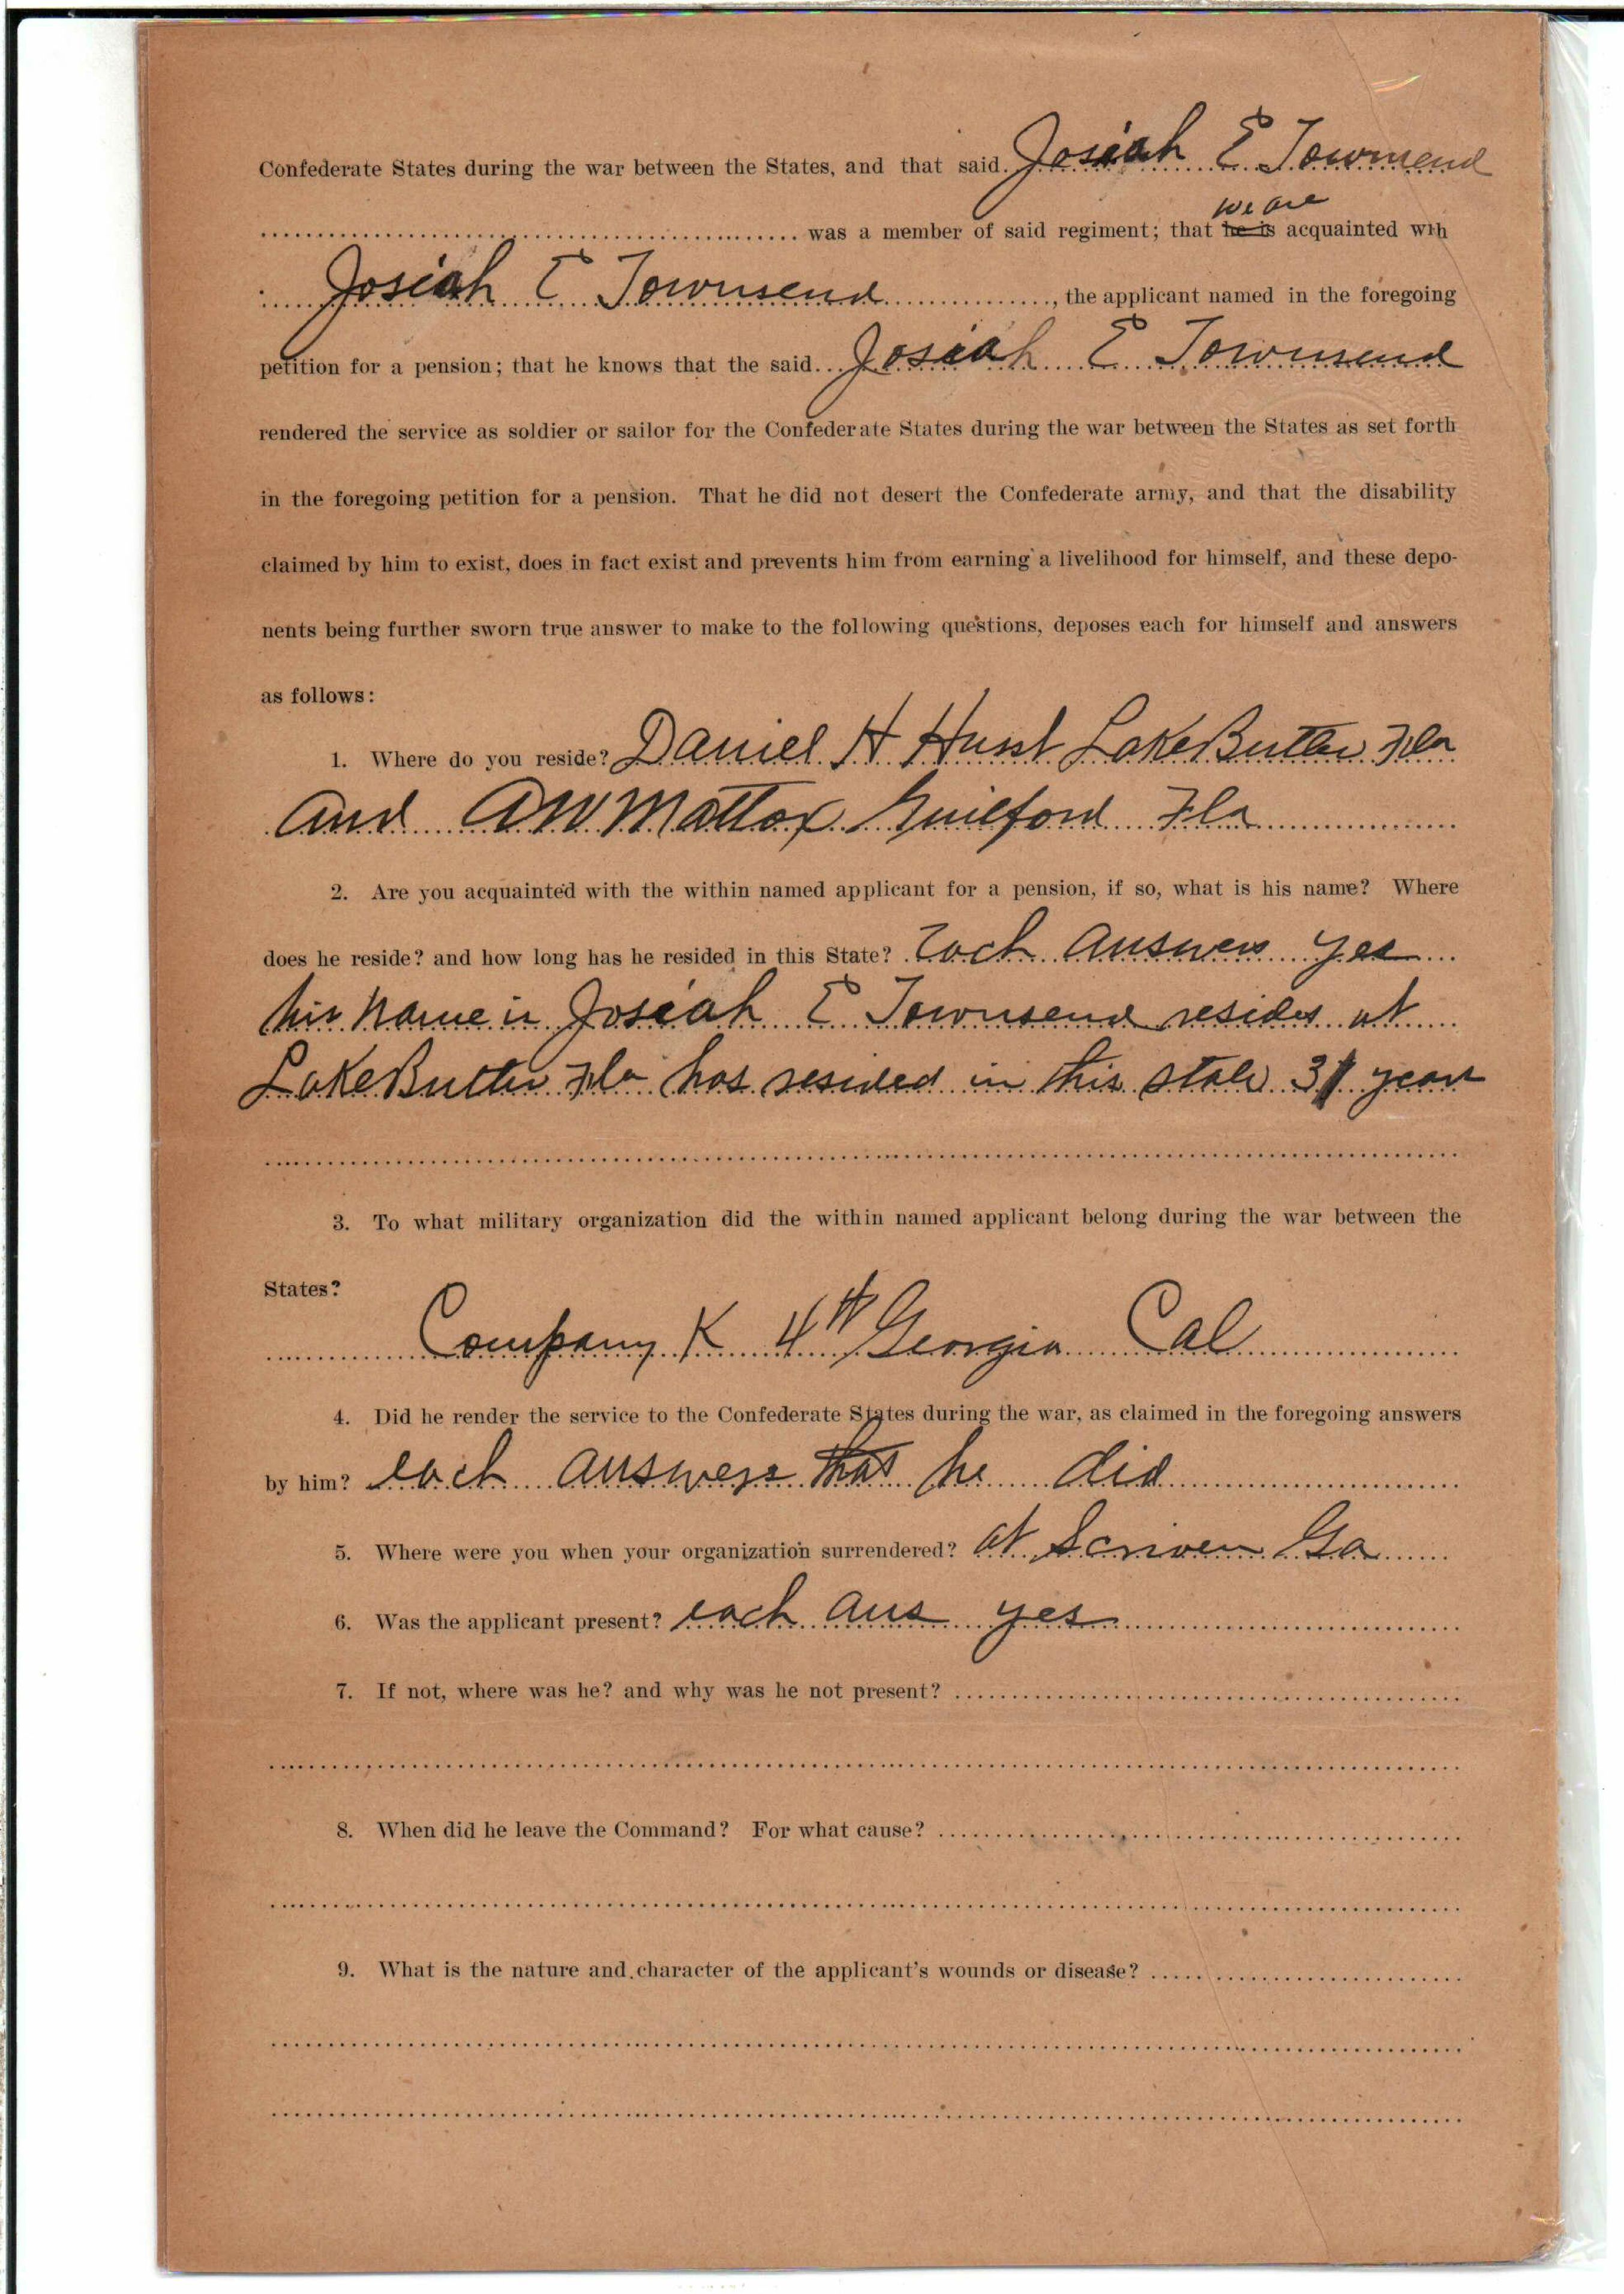 Confederate States during the war between the States, and that said Josiah E Townsend
we are
was a member of said regiment; that he is acquainted wih
Josiah E Townsend, the applicant named in the foregoing
petition for a pension; that he knows that the said Josiah E Townsend
rendered the service as soldier or sailor for the Confederate States during the war between the States as set forth
in the foregoing petition for a pension. That he did not desert the Confederate army, and that the disability
claimed by him to exist, does in fact exist and prevents him from earning a livelihood for himself, and these depo-
nents being further sworn true answer to make to the following questions, deposes each for himself and answers
as follows:
1. Where do you reside? Daniel H Lake Butler Fla
and AW Mattox Guilford Fla
2. Are you acquainted with the within named applicant for a pension, if so, what is his name? Where
does he reside? and how long has he resided in this State? Each answers yes
his name is Josiah E Townsend resides at
Lake Butler Fla has resided in this state years
3. To what military organization did the within named applicant belong during the war between the
States?
Company K 4th Georgia Cal
4. Did he render the service to the Confederate States during the war, as claimed in the foregoing answers
by him? each answers that he did
5. Where were you when your organization surrendered? at Scriven Ga
6. Was the applicant present? each ans yes
7. If not, where was he? and why was he not present?
8. When did he leave the Command? For what cause?
9. What is the nature and character of the applicant's wounds or disease?